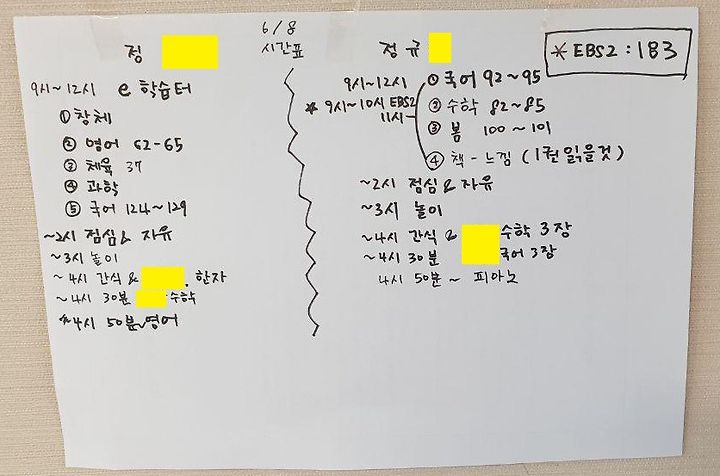 6/8
시간표
정
9시~12시 e 학습터
① 창체
② 영어 62-65
③ 체육 37
④ 과학
⑤ 국어 124~129
~2시 점심& 자유
~3시 놀이
~4시 간식 & . 한자
~4시 30분 수학
*4시 50분~영어
정규
* EBS2 : 183
9시~12시 ① 국어 92~95
* 9시~10시 EBS2
11시- ② 수학 82~85
③ 봄 100~101
④ 책 - 느낌 (1권 읽을것)
~2시 점심 & 자유
~3시 놀이
~4시 간식 & 수학 3장
~4시 30분 국어 3장
4시 50분 ~ 피아노